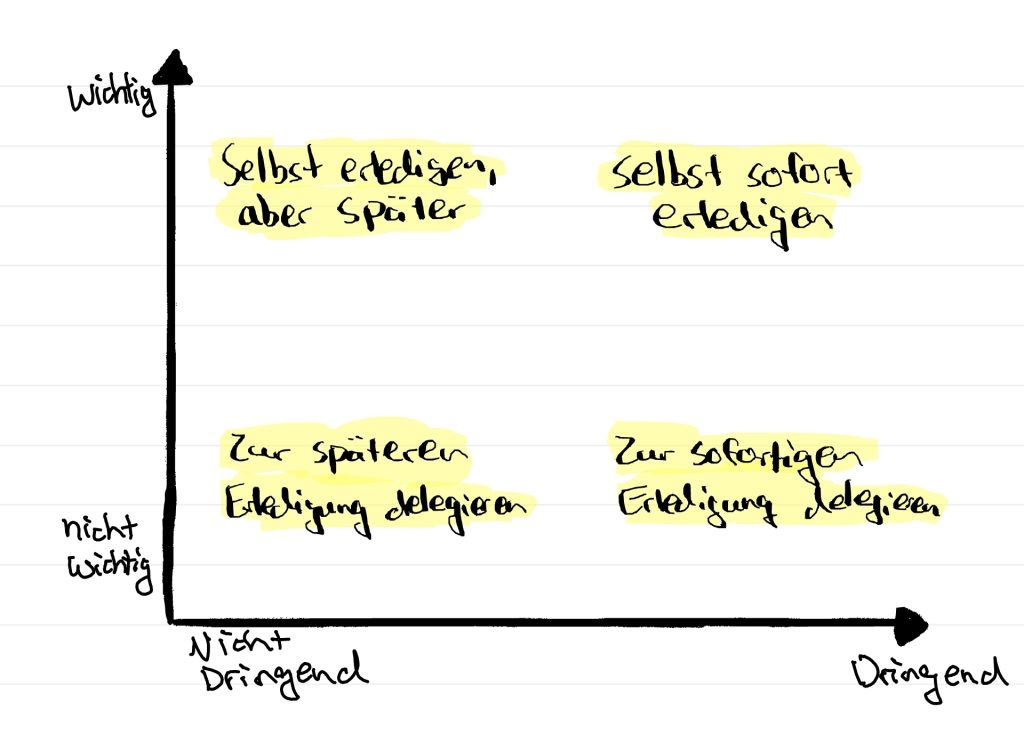 Wichtig
Selbst erledigen,
aber später
Selbst sofort
erledigen
Zur späteren
Erledigung delegieren
Zur sofortigen
Erledigung delegieren
nicht
wichtig
Nicht
Dringend
Dringend